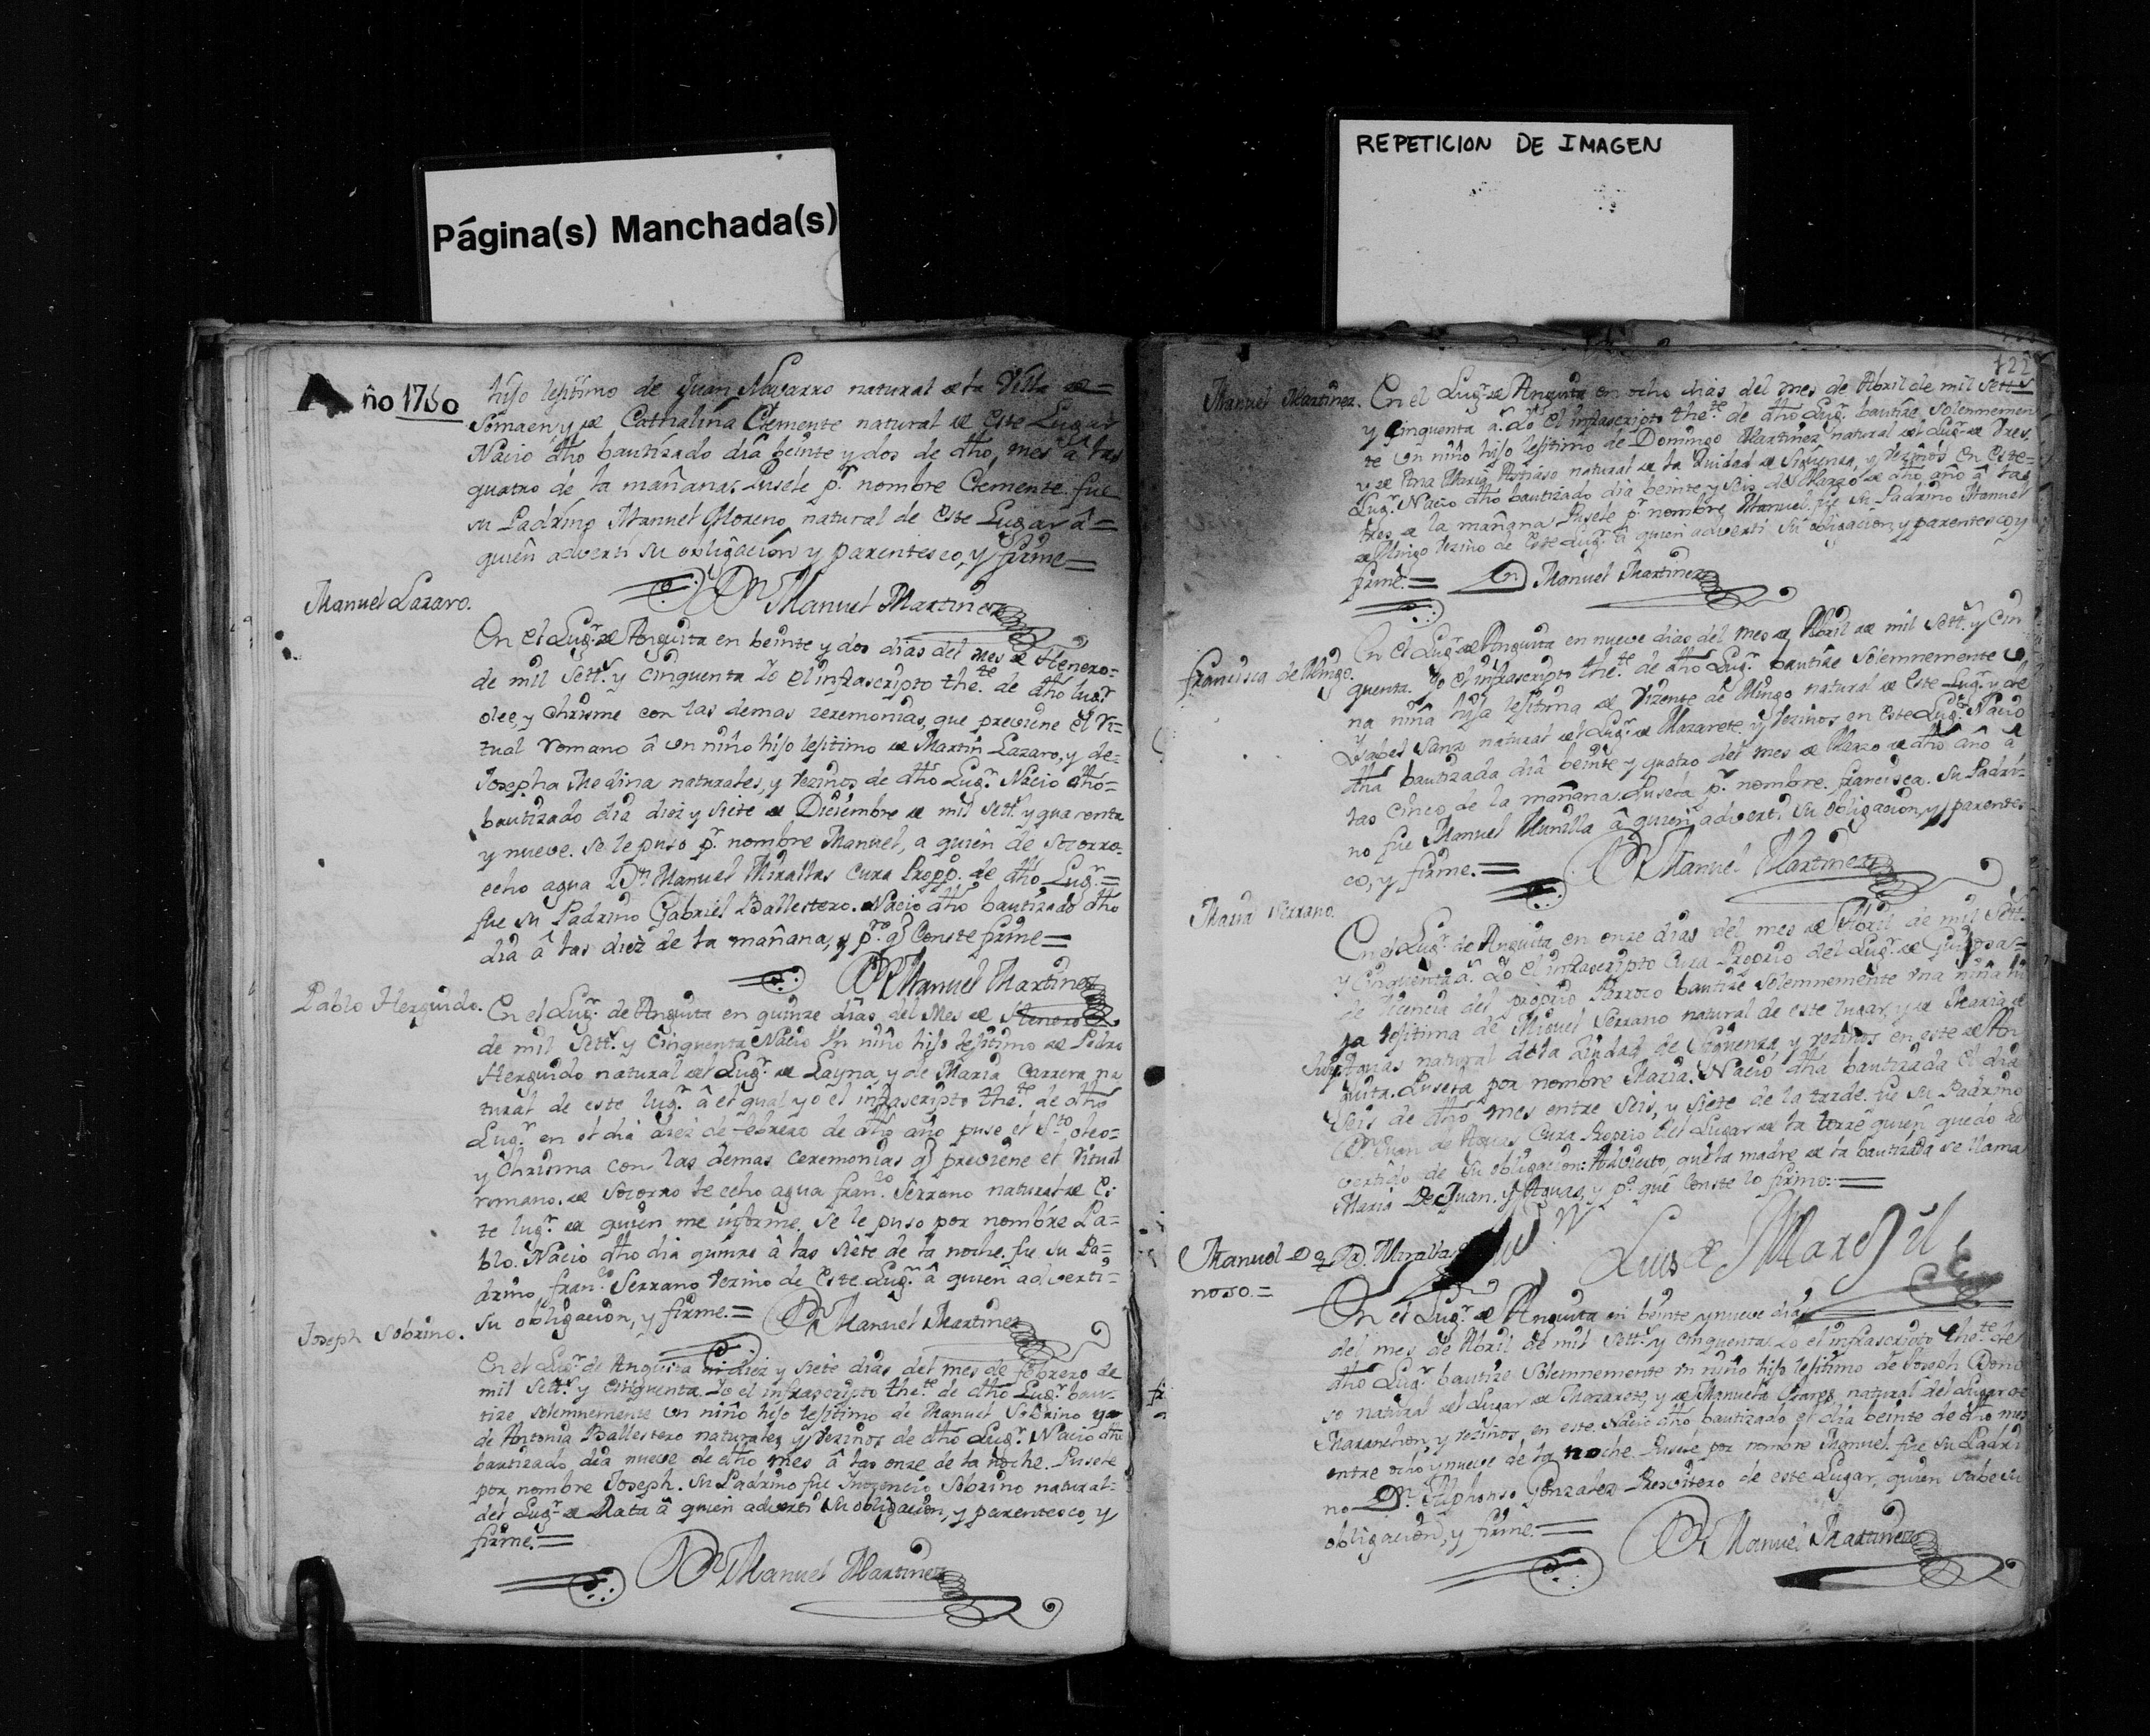 Página(s) Manchada(s)
REPETICION DE IMAGEN
Año 1750
hijo lejitimo de Juan Navarro natural de la Villa de=
Somaen, y de Cathalina Clemente natural de este Lugar
Nacio dho bautizado dia beinte y dos de dho mes a las
quatro de la mañana. Pusele pr. nombre Clemente. fue
su Padrino Manuel Moreno natural de este Lugar â=
quien adverti su obligacion y parentesco, y firme=
Dn Manuel Martinez
Manuel Lazaro.
En el Lugr. de Anguita en beinte y dos dias del mes de Henero-
de mil Setts. y Cinquenta Yo el infrascripto thete. de dho lugr.
olee, y Chrisme con las demas zeremonias, que previene el Ri=
tual romano â un niño hijo lejitimo de Martin Lazaro, y de-
Josepha Medina naturales, y vezinos de dho Lugr. Nacio dho-
bautizado dia diez y siete de Diciembre de mil Setts. y quarenta
y nueve. se le puso pr. nombre Manuel, a quien de socorro-
echo agua Dn. Manuel Mirallas Cura Propo. de dho Lugr.=
fue su Padrino Gabriel Ballestero. Nacio dho bautizado dho
dia â las diez de la mañana, y pa. q Conste firme=
Dn Manuel Martinez
Pablo Herguido.
En el Lugr. de Anguita en quinze dias del Mes de Henero
de mil Setts. y Cinquenta Nacio Un niño hijo lejitimo de Pedro
Herguido natural del Lugr. de Layna, y de Maria Carrera na
tural de este lugr. â el qual yo el infrascripto thete. de dho
Lugr. en el dia diez de febrero de dho año puse el Sto. oleo-
y Chrisma con las demas ceremonias q previene el Ritual
romano. de socorro le echo agua Franco. Serrano natural de Es
te lugr. de quien me informe. se le puso por nombre Pa=
blo. Nacio dho dia quinze â las siete de la noche. fue su Pa=
drino, franco. Serrano vezino de este Lugr. â quien adverti-
su obligacion, y firme.= Dn Manuel Martinez
Joseph Sobrino.
En el Lugr. de Anguita en diez y siete dias del mes de febrero de
mil Setts. y Cinquenta. Yo el infrascripto thete. de dho Lugr. bau-
tize solemnemente un niño hijo lejitimo de Manuel Sobrino y
de Antonia Ballestero naturales, y vezinos de dho Lugr. Nacio dho
bautizado dia nueve de dho mes â las onze de la noche. Pusele
por nombre Joseph. su Padrino fue Inozencio Sobrino natural-
del Lugr. de Rata â quien adverti su obligacion, y parentesco, y
firme.=
Dn Manuel Martinez
122
Manuel Martinez.
En el Lugr. de Anguita en ocho dias del mes de Abril de mil Setts.
y Cinquenta a. Yo el infrascripto thete. de dho Lugr. bautize solennemen
te un niño hijo lejitimo de Domingo Martinez natural del Lugr. de
y de Ana Maria natural de la Ziudad de Siguenza, y vezinos en este=
Lugr. Nacio dho bautizado dia beinte y seis de Marzo de dho año â las
tres de la mañana Pusele pr. nombre Manuel. fue su Padrino Manuel
de Mingo vezino de este Lugr. â quien adverti su obligacion, y parentesco y
firme.= Dn Manuel Martinez
Francisca de Mingo.
En el Lugr. de Anguita en nueve dias del mes de Abril de mil Setts. y Cin
quenta. Yo el infrascripto thete. de dho Lugr. bautize solemnemente u
na niña hija lejitima de Vizente de Mingo natural de este Lugr. y de
Ysabel Sanz natural del Lugr. de Mazarete. y vezinos en este Lugr. Nacio
dha bautizada dia beinte y quatro del mes de Marzo de dho año â
las cinco de la mañana. Pusela pr. nombre. francisca. su Padri-
no fue Manuel Munilla â quien adverti su obligacion, y parentes
co, y firme.= Dn Manuel Martinez
Maria Serrano.
En el Lugr. de Anguita, en onze dias del mes de Abril de mil Setts.
y Cinquenta a. Yo el infrascripto Cura Proprio del Lugr. de
de licencia del proprio Parroco bautize solemnemente una niña hi
ja lejitima de Miguel Serrano natural de este lugar, y de Maria de
Juan y Aguas natural de la Ziudad de Siguenza y vezinos en este de An
guita. Pusela por nombre Maria. Nacio dha bautizada el dia
seis de dho mes entre seis, y siete de la tarde. fue su Padrino
Dn. Juan de Aguas Cura Proprio del Lugar de la torre quien quedo ad
vertido de su obligacion: Advierto, que la madre de la bautizada se llama
Maria De Juan. y Aguas, y pa. que Conste lo firmo.=
Manuel Do
noso.=
En el Lugr. de Anguita en beinte y nueve dias
del mes de Abril de mil Setts. y Cinquenta. Yo el infrascripto thete. de
dho Lugr. bautize solemnemente un niño hijo lejitimo de Joseph Dono
so natural del Lugar de Mazarete, y de Manuela natural del Lugar de
Maranchon, y vezinos, en este. Nacio dho bautizado el dia beinte de dho mes
entre ocho, y nueve de la noche. Pusele por nombre Manuel. fue su Padri
no Dn. Alphonso Gonzalez Presvitero de este Lugar, quien sabe su
obligacion, y firme.= Dn Manuel Martinez